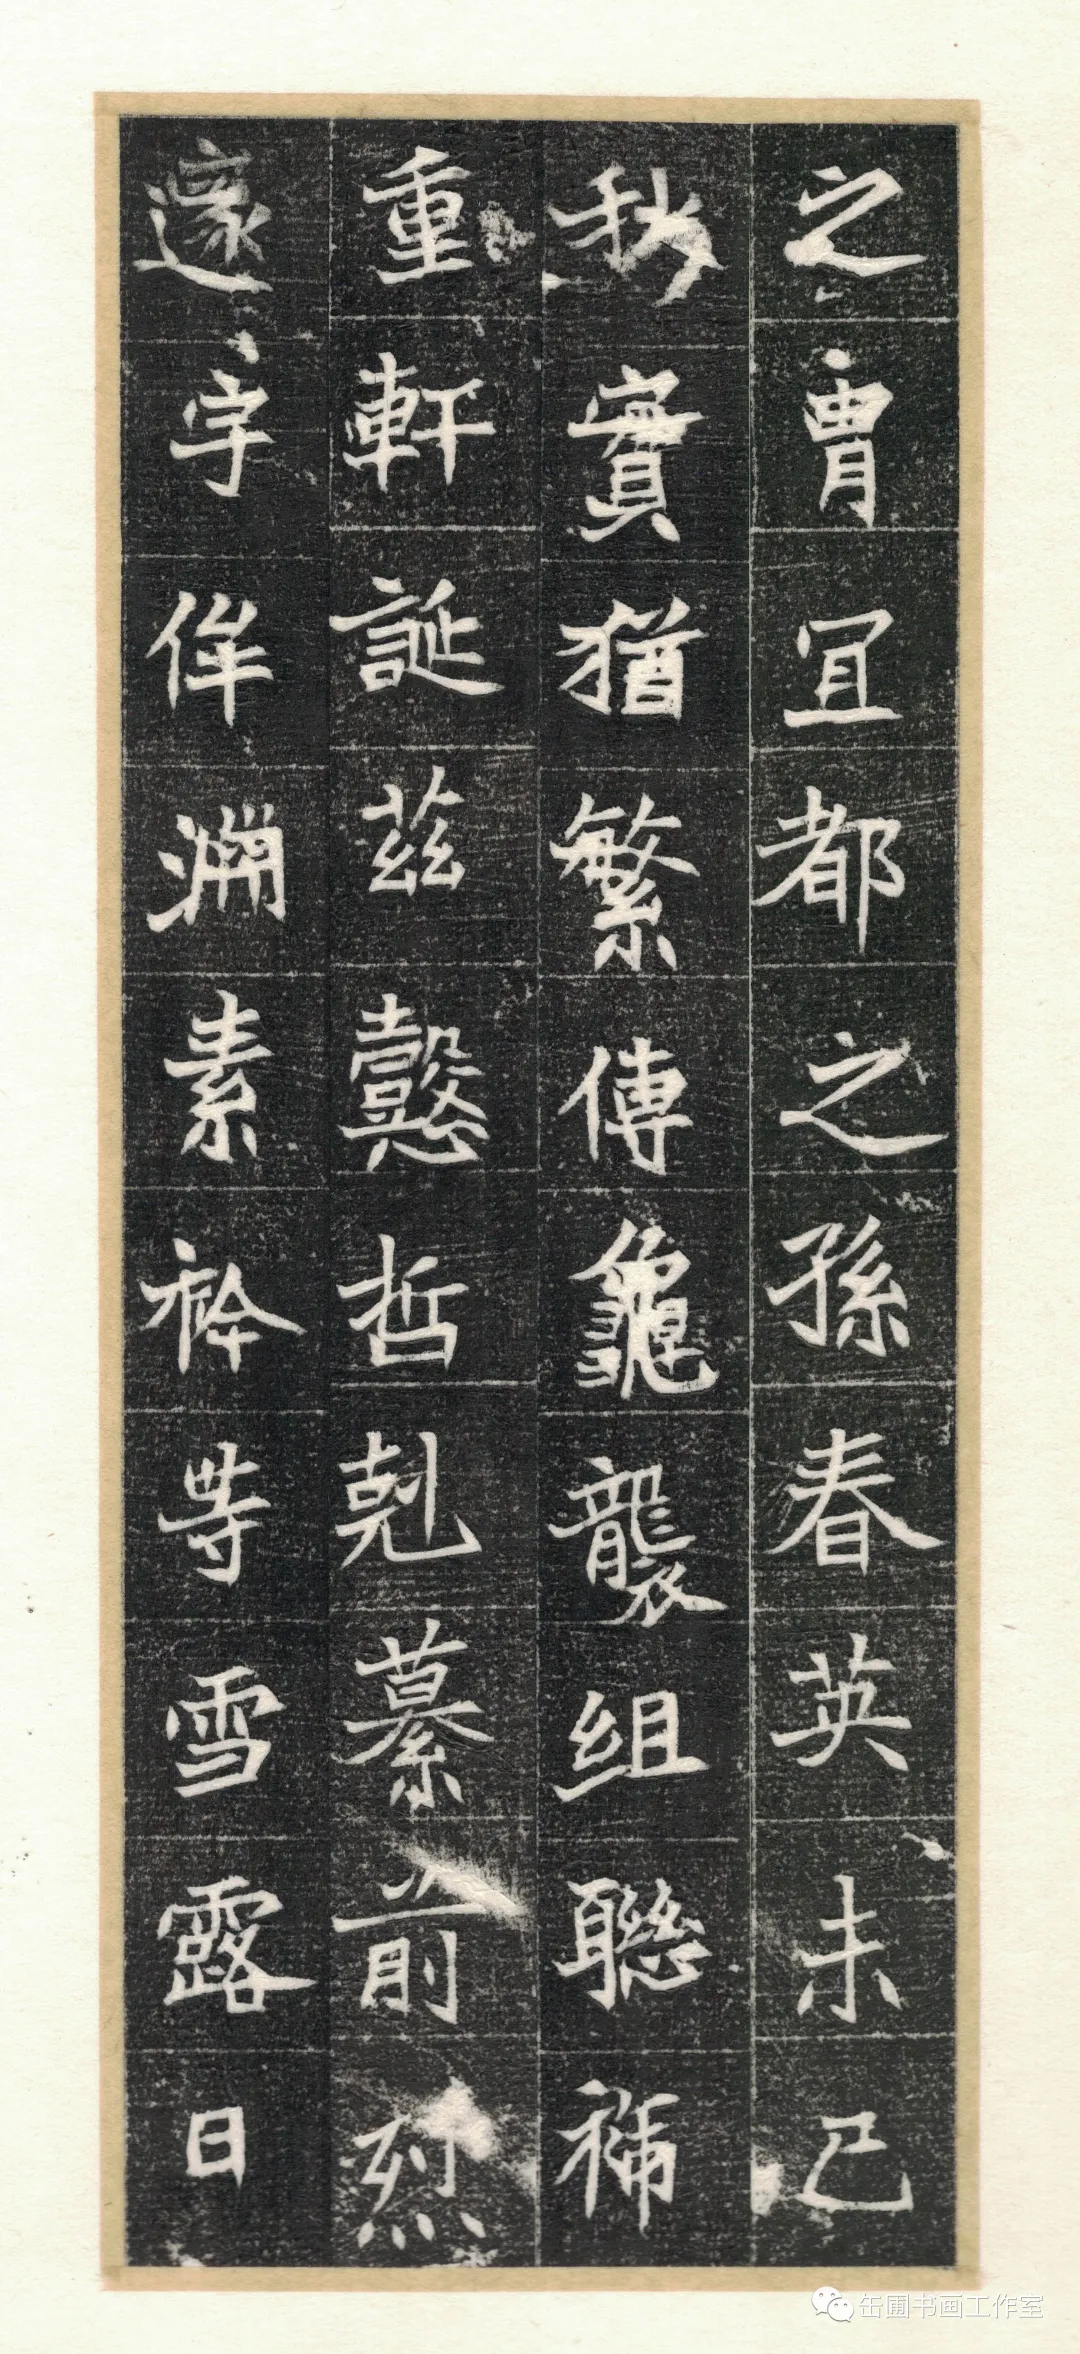 之胄冝都之孫春英未已
秋實猶繁傳龜襲組聯𥙷
重軒誕茲懿哲剋纂前烈
邃宇侔淵素衿等雪露日
缶圃书画工作室